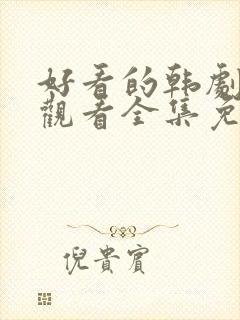 好看的韩劇
觀看全集免
倪貴賓